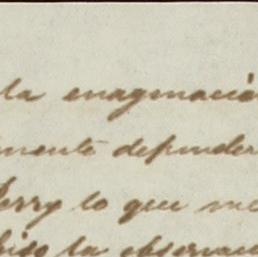 la enagenació
mente defender
erry lo que me
hiso la observac